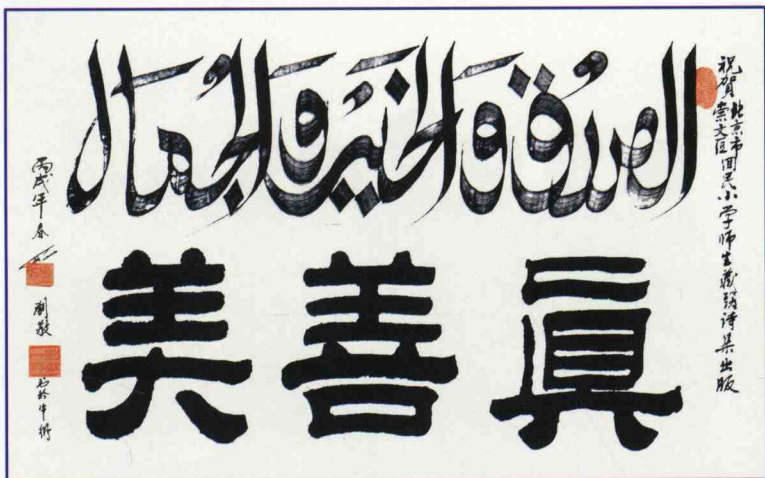 الصدق والخير والجمال
眞善美
祝贺北京市崇文区回民小学师生藏头诗集出版
丙戌年春
劉敬
书於牛街